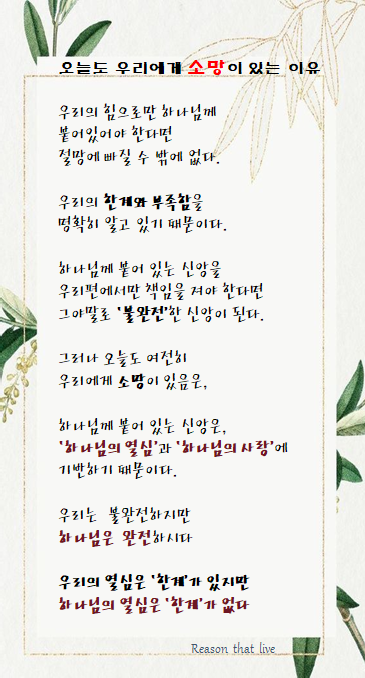 오늘도 우리에게 소망이 있는 이유
우리의 힘으로만 하나님께
붙어있어야 한다면
절망에 빠질 수 밖에 없다.
우리의 한계와 부족함을
명확히 알고 있기 때문이다.
하나님께 붙어 있는 신앙을
우리편에서만 책임을 져야 한다면
그야말로 '불완전'한 신앙이 된다.
그러나 오늘도 여전히
우리에게 소망이 있음은,
하나님께 붙어 있는 신앙은,
'하나님의 열심'과 '하나님의 사랑'에
기반하기 때문이다.
우리는 불완전하지만
하나님은 완전하시다
우리의 열심은 '한계'가 있지만
하나님의 열심은 '한계'가 없다
Reason that live